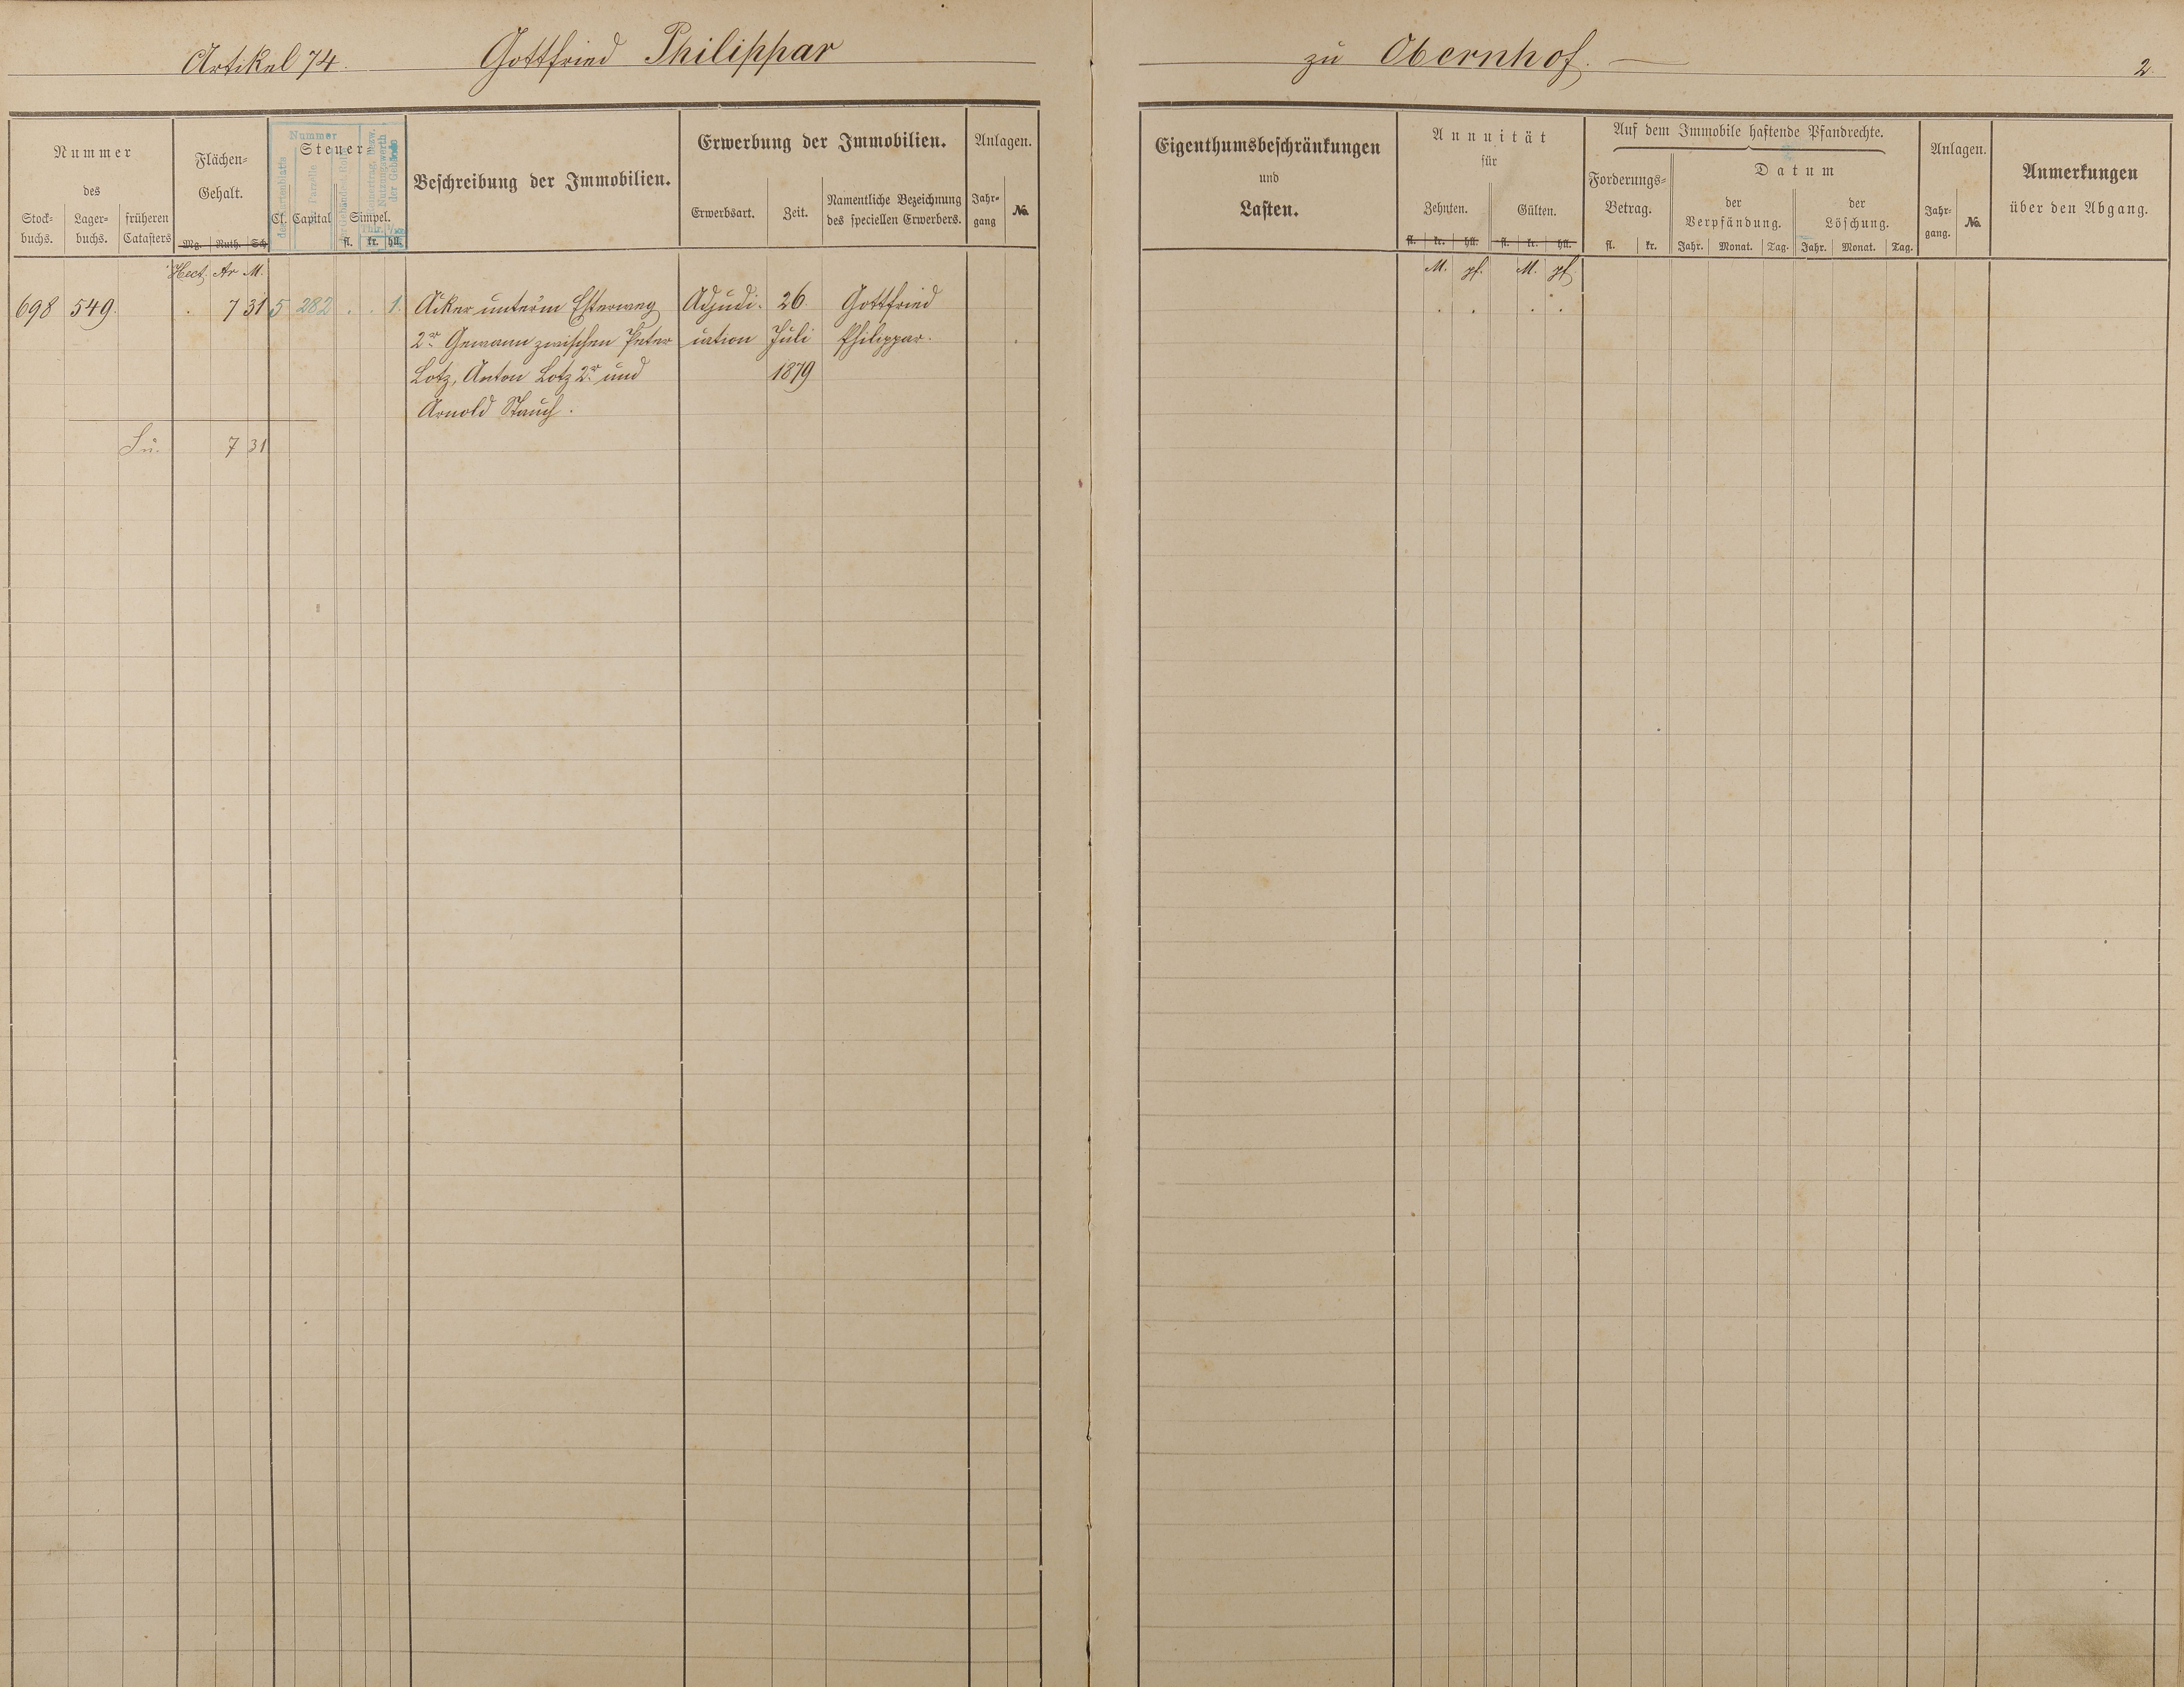 Artikel 74. Gottfried Philippar zu Obernhof. 2.
Nummer
des
Stock-
buchs.
Lager-
buchs.
früheren
Catasters
Flächen-
Gehalt.
Mg. Ruth. Sch.
Nummer
Steuer
Parcelle
Cl. Capital Simpel.
fl. kr. hll.
Beschreibung der Immobilien.
Erwerbung der Immobilien.
Erwerbsart. Zeit.
Namentliche Bezeichnung
des speciellen Erwerbers.
Anlagen.
Jahr-
gang
No.
Eigenthumsbeschränkungen
und
Lasten.
Annuität
für
Zehnten. Gülten.
fl. kr. hll. fl. kr. hll.
Auf dem Immobile haftende Pfandrechte.
Forderungs-
Betrag.
fl. kr.
Datum
der
Verpfändung.
der
Löschung.
Jahr. Monat. Tag. Jahr. Monat. Tag.
Anlagen.
Jahr-
gang.
No.
Anmerkungen
über den Abgang.
Hect. Ar M. M. pf. M. pf.
698 549. . 7 31 5 282 . . 1. Acker unter'm Esterweg Adjudi- 26. Gottfried
2r Gewann zwischen Peter cation Juli Philippar.
Lotz, Anton Lotz 2r und 1879
Arnold Stauch.
Su. 7 31